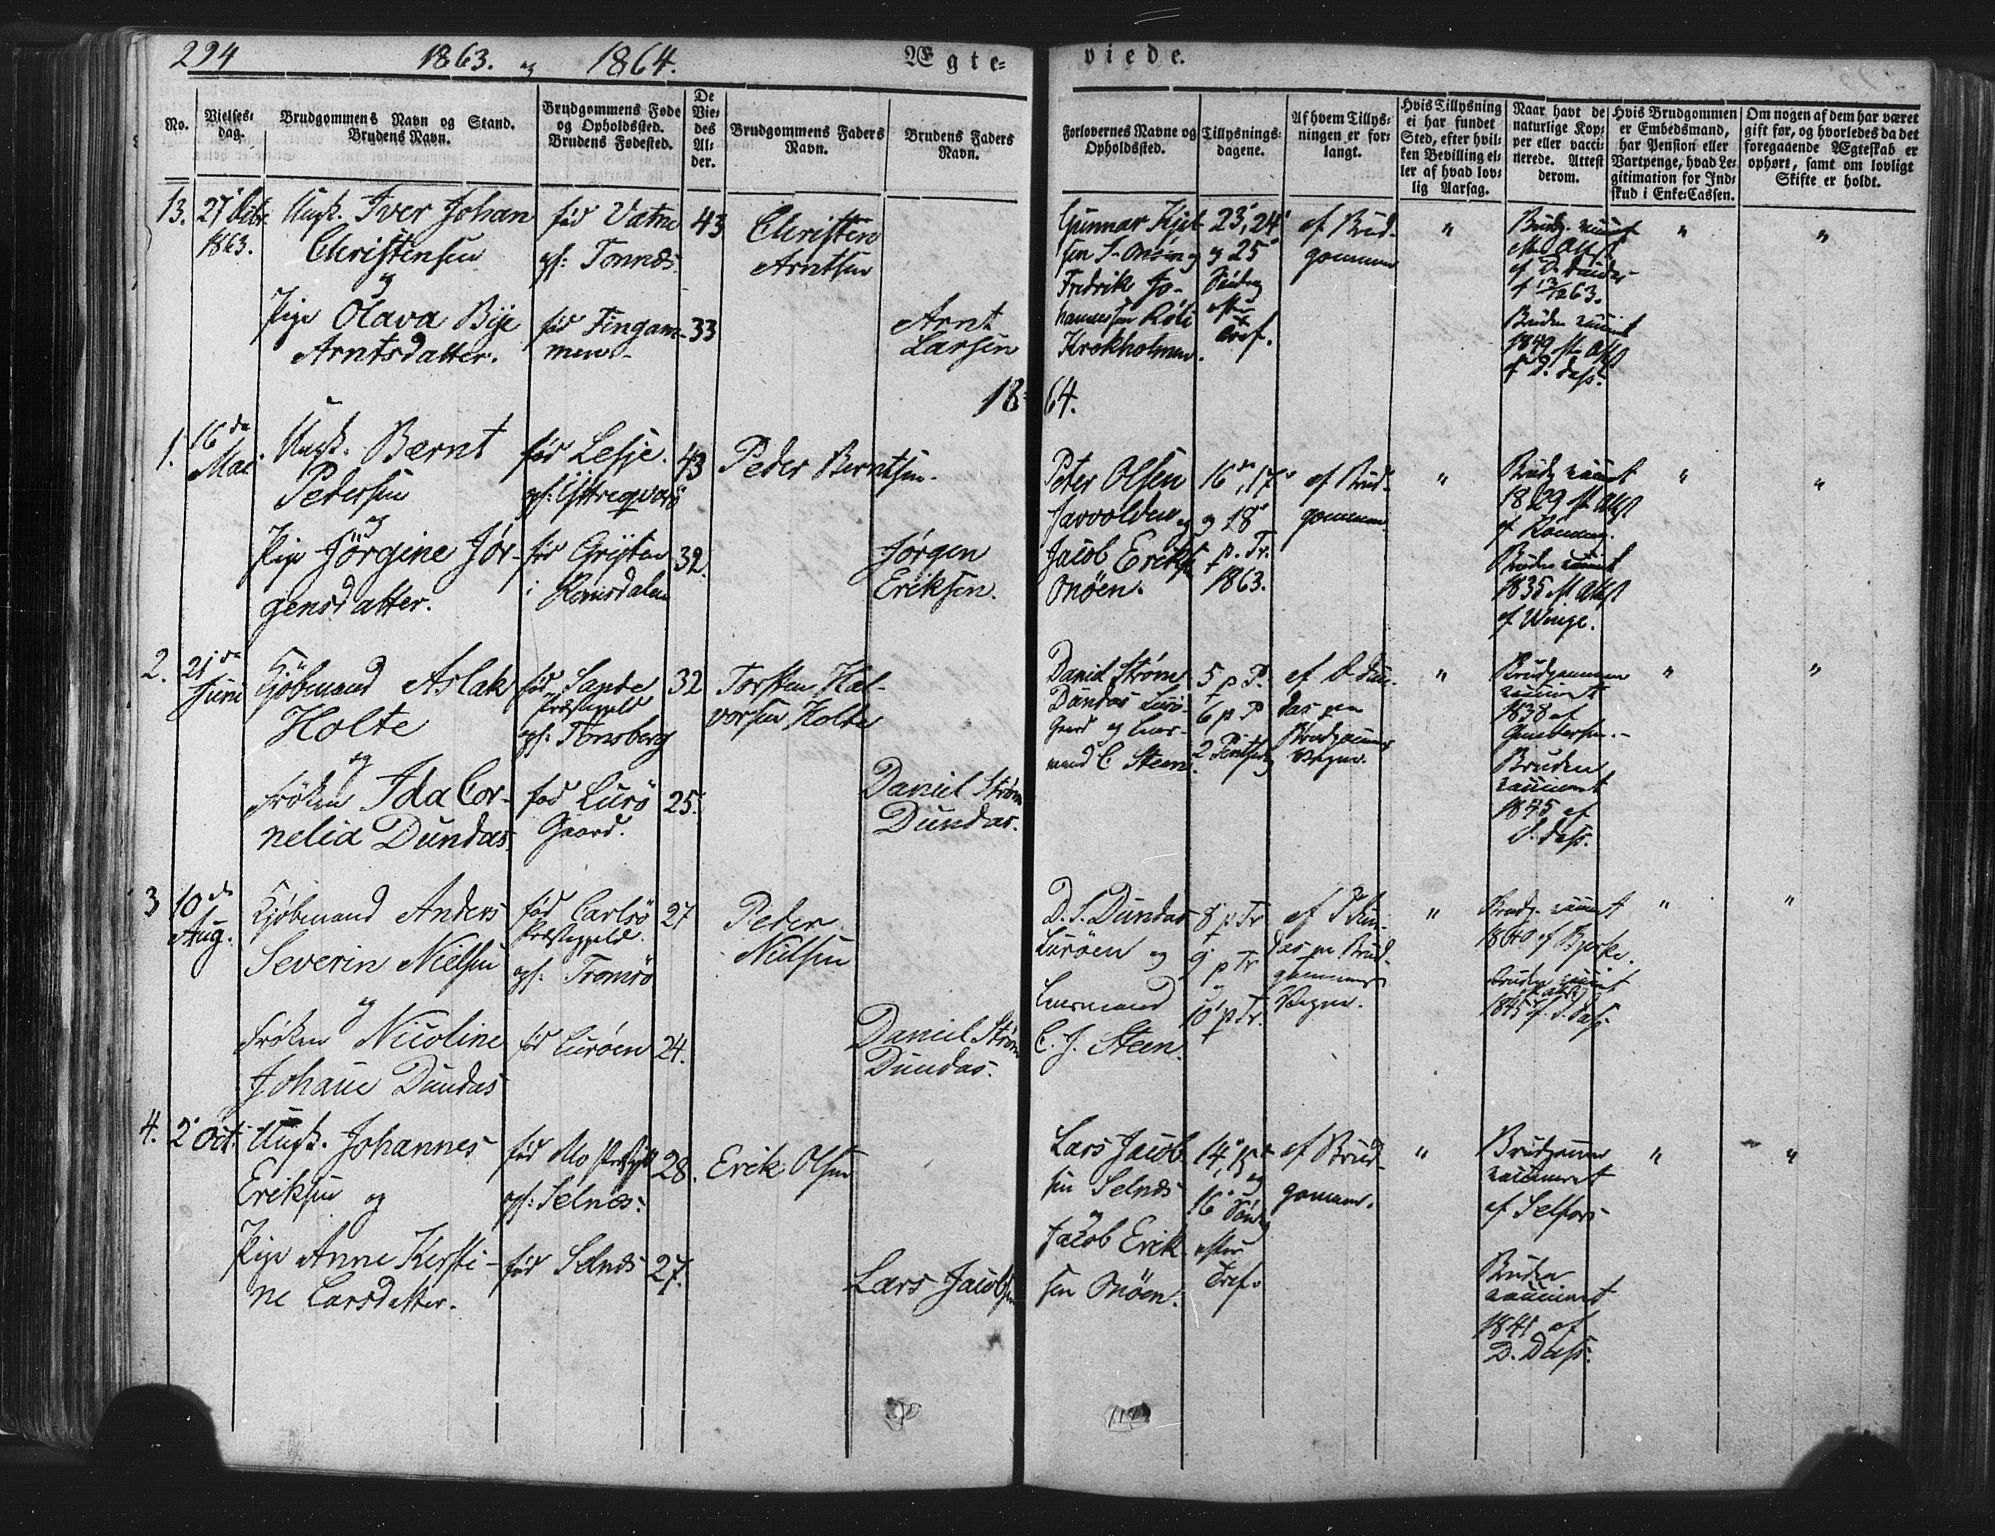 294 1863. og 1864. Ægte- viede.
No.
Vielses-
dag.
Brudgommens Navn og Stand.
Brudens Navn.
Brudgommens Føde
og Opholdssted.
Brudens Fødested.
De
Vie-
des
Al-
der.
Brudgommens Faders
Navn.
Brudens Faders
Navn.
Forlovernes Navne og
Opholdssted.
Tillysnings-
dagene.
Af hvem Tillys-
ningen er for-
langt.
Hvis Tillysning
ei har fundet
Sted, efter hvil-
ken Bevilling el-
ler af hvad lov-
lig Aarsag.
Naar havt de
naturlige Kop-
per eller vacci-
nerede. Attest
derom.
Hvis Brudgommen
er Embedsmand,
har Pension eller
Vartpenge, hvad Le-
gitimation for Ind-
skud i Enke-Cassen.
Om nogen af dem har været
gift før, og hvorledes da det
foregaaende Ægteskab er
ophørt, samt om lovligt
Skifte er holdt.
13.
27 Octbr
1863.
Ungk. Iver Johan
Christensen
og
Pige Olava Bye
Arntsdatter.
fød Vatne
gf: Tonnes
fød Tingam-
men
43
33
Christen
Arntsen
Arnt
Larsen
Gunnar Kjel-
sen
Fredrik Jo-
hannessen
Krokholmen.
23', 24'
og 25'
Søndag
efter
Tref.
af Brud-
gommen
"
Brudg.
af D. Dundas
63.
Bruden
1849
af D. Dass.
"
"
18- 64.
1.
16de
Mai
Ungk. Bærnt
Pedersen
og
Pige Jörgine Jör-
gensdatter.
fød Lesje.
fød Grytten
i Romsdalen
43
32.
Peder Berntsen.
Jørgen
Eriksen.
Peter Olsen
og
Jacob Eriks
Onøen.
16de, 17'
og 18'
p. Tr.
1863.
af Brud-
gommen
"
Brudg.
1829
Bruden
1835
af Winge.
"
"
2.
21de
Juni
Kjöbmand Aslak
Holte
og
Frøken Ida Cor-
nelia Dundas
fød Sande
Præstegjeld
gf: Tønsberg
fød Lurö
Gaard.
32
25.
Torsten Hal-
vorsen Holte
Daniel Strøm
Dundas.
Daniel Strøm
Dundas Lurö
Gaard og Lens-
mand C Steen
5 p T.
6 p T
2
af D Dun-
das paa
Brudgommens
Vegne.
"
Brudgommen
vaccineret
1838 af
Gundersen.
Bruden
vaccineret
1845 af
D. Dass.
"
"
3
10de
Aug.
Kjöbmand Anders
Severin Nielsen
og
Frøken Nicoline
Johane Dundas
fød Carlsö
Præstegjeld.
gf. Tromsö
fød Lurøen
27
24.
Peder
Nielsen
Daniel Strøm
Dundas.
D. S. Dundas
Lurøen og
Lensmand
C. J. Steen.
8' p Tr
9' p Tr
10' p Tr.
af Dun-
das paa Brud-
gommens
Vegne.
"
Brudg.
1840 af Bjerke.
Bruden
1845 af D. Dass.
"
"
4.
2' Oct.
Ungk. Johannes
Eriksen og
Pige Anne Kersti-
ne Larsdatter.
fød Mo
gf: Selnes:
fød Selnes
28.
27.
Erik Olsen
Lars Jacobsen
Lars Jacob-
sen Selnes
og
Jacob Erik-
sen Onøen.
14', 15de
og
16' Søndag
efter
Tref.
af Brud-
gommen.
"
Brudgommen
vaccineret
af Selfors
Bruden
vaccineret
1841 af
D. Dass.
"
"